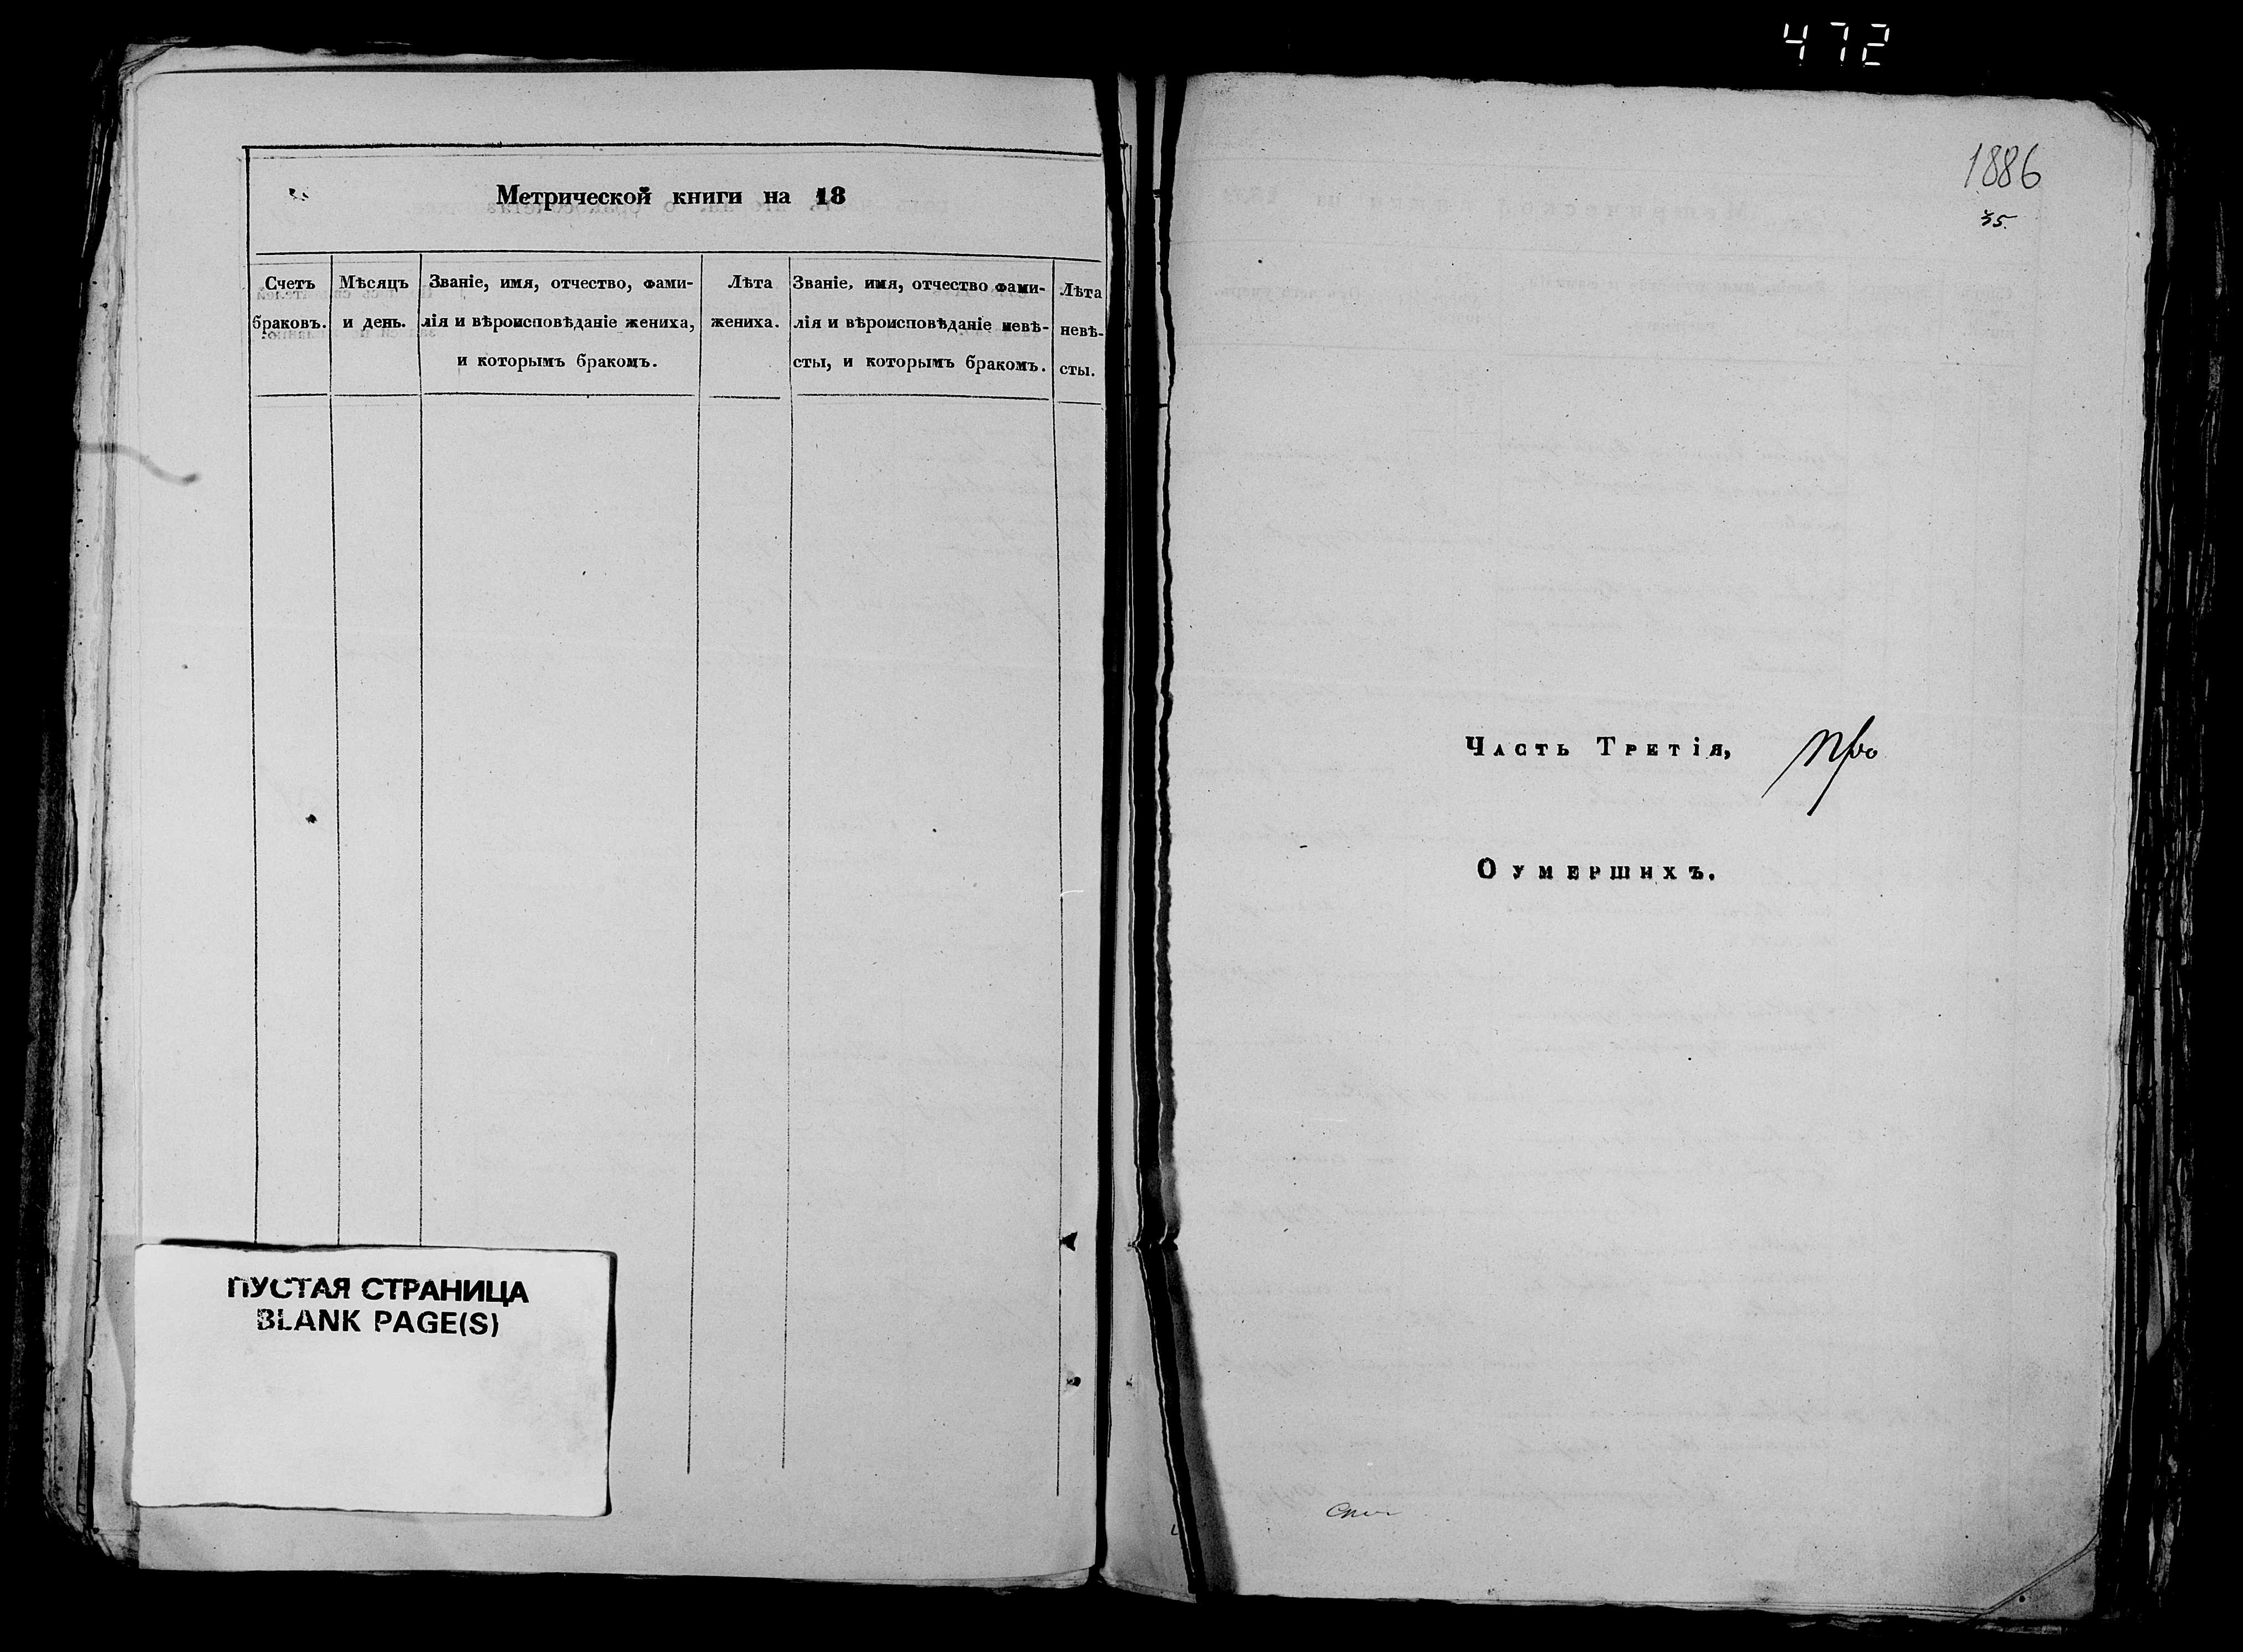 472
Метрической книги на 18
Счетъ браковъ.
Мѣсяцъ и день.
Званіе, имя, отчество, фами-
лія и вѣроисповѣданіе жениха,
и которымъ бракомъ.
Лѣта жениха.
Званіе, имя, отчество фами-
лія и вѣроисповѣданіе невѣ-
сты, и которымъ бракомъ.
Лѣта
невѣ-
сты.
ПУСТАЯ СТРАНИЦА
BLANK PAGE(S)
1886
35.
Часть Третія,
О умершихъ.